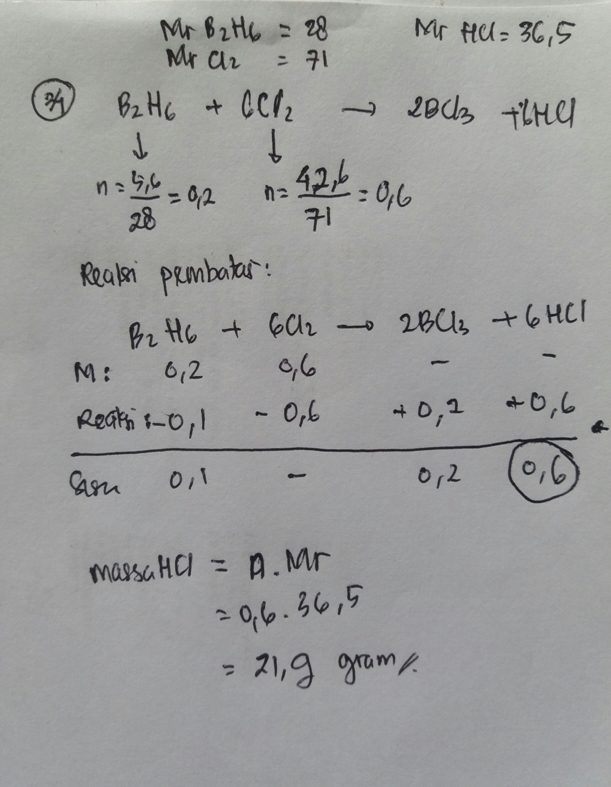 Mr B2H6 = 28 Mr HCl = 36,5
Mr Cl2 = 71
B2H6 + 6Cl2 → 2BCl3 + 6HCl
↓ ↓
n = 5,6/28 = 0,2 n = 42,6/71 = 0,6
Reaksi pembatas:
B2H6 + 6Cl2 → 2BCl3 + 6HCl
M: 0,2 0,6 - -
Reaksi: -0,1 - 0,6 +0,2 +0,6
Sisa 0,1 - 0,2 0,6
massa HCl = n . Mr
= 0,6 . 36,5
= 21,9 gram //.